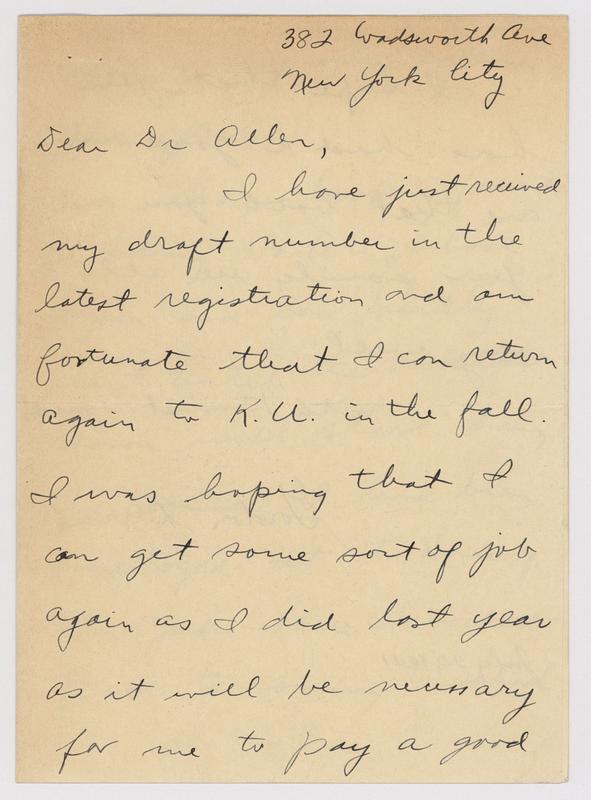 382 Wadsworth Ave
New York City
Dear Dr Allen,
I have just received
my draft number in the
latest registration and am
fortunate that I can return
again to K.U. in the fall.
I was hoping that I
can get some sort of job
again as I did last year
as it will be necessary
for me to pay a good